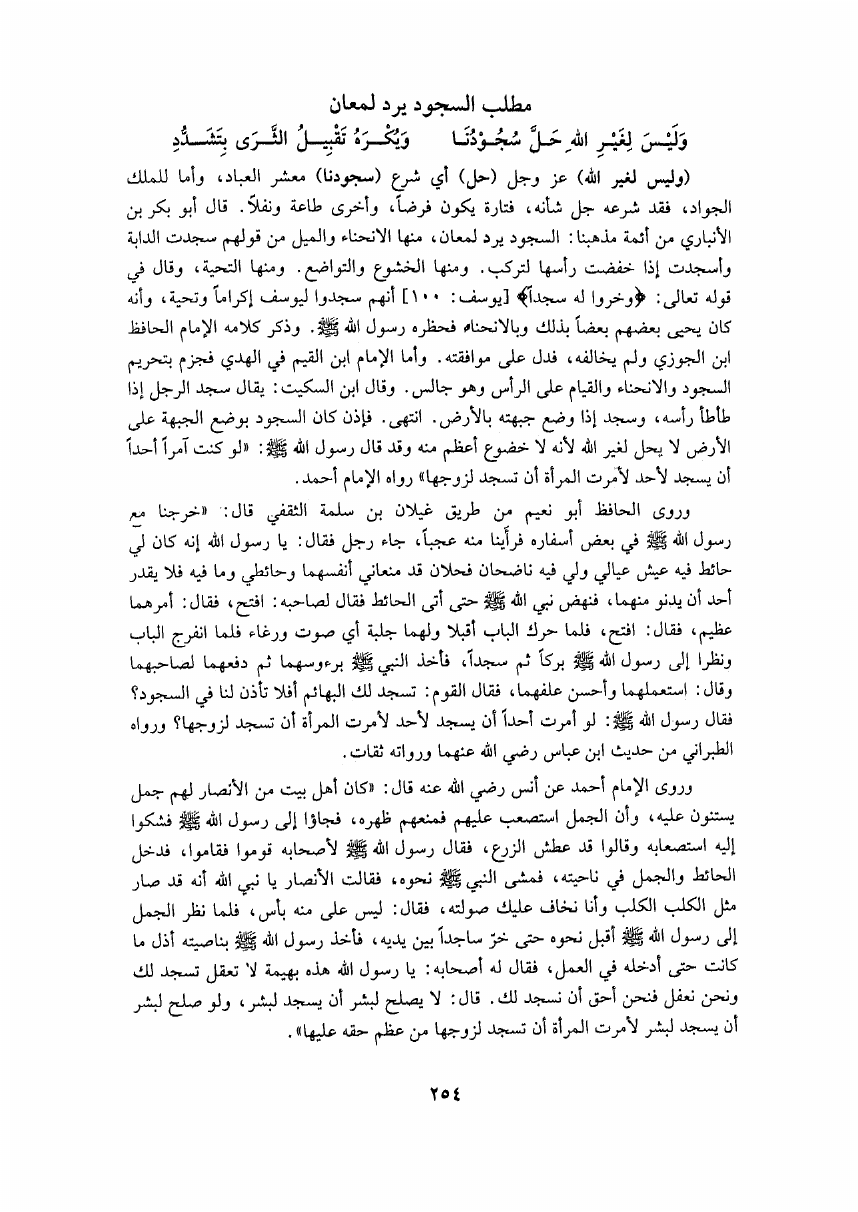 مطلب السجود يرد لمعان
وَلَيْسَ لِغَيْرِ اللهِ حَلَّ سُجُوْدُنَا وَيُكْرَهُ تَقْبِيلُ الثَّرَى بِتَشَدُّدِ
(وليس لغير الله) عز وجل (حل) أي شرع (سجودنا) معشر العباد، وأما للملك
الجواد، فقد شرعه جل شأنه، فتارة يكون فرضاً، وأخرى طاعة ونفلاً. قال أبو بكر بن
الأنباري من أئمة مذهبنا: السجود يرد لمعان، منها الانحناء والميل من قولهم سجدت الدابة
وأسجدت إذا خفضت رأسها لتركب. ومنها الخشوع والتواضع. ومنها التحية، وقال في
قوله تعالى: ﴿وخروا له سجداً﴾ [يوسف: ١٠٠] أنهم سجدوا ليوسف إكراماً وتحية، وأنه
كان يحيى بعضهم بعضاً بذلك وبالانحناء فحظره رسول الله ﷺ. وذكر كلامه الإمام الحافظ
ابن الجوزي ولم يخالفه، فدل على موافقته. وأما الإمام ابن القيم في الهدي فجزم بتحريم
السجود والانحناء والقيام على الرأس وهو جالس. وقال ابن السكيت: يقال سجد الرجل إذا
طأطأ رأسه، وسجد إذا وضع جبهته بالأرض. انتهى. فإذن كان السجود بوضع الجبهة على
الأرض لا يحل لغير الله لأنه لا خضوع أعظم منه وقد قال رسول الله ﷺ: «لو كنت آمراً أحداً
أن يسجد لأحد لأمرت المرأة أن تسجد لزوجها» رواه الإمام أحمد.
وروى الحافظ أبو نعيم من طريق غيلان بن سلمة الثقفي قال: «خرجنا مع
رسول الله ﷺ في بعض أسفاره فرأينا منه عجباً، جاء رجل فقال: يا رسول الله إنه كان لي
حائط فيه عيش عيالي ولي فيه ناضحان فحلان قد منعاني أنفسهما وحائطي وما فيه فلا يقدر
أحد أن يدنو منهما، فنهض نبي الله ﷺ حتى أتى الحائط فقال لصاحبه: افتح، فقال: أمرهما
عظيم، فقال: افتح، فلما حرك الباب أقبلا ولهما جلبة أي صوت ورغاء فلما انفرج الباب
ونظرا إلى رسول الله ﷺ بركاً ثم سجداً، فأخذ النبي ﷺ برءوسهما ثم دفعهما لصاحبهما
وقال: استعملهما وأحسن علفهما، فقال القوم: تسجد لك البهائم أفلا تأذن لنا في السجود؟
فقال رسول الله ﷺ: لو أمرت أحداً أن يسجد لأحد لأمرت المرأة أن تسجد لزوجها؟ ورواه
الطبراني من حديث ابن عباس رضي الله عنهما ورواته ثقات.
وروى الإمام أحمد عن أنس رضي الله عنه قال: «كان أهل بيت من الأنصار لهم جمل
يستنون عليه، وأن الجمل استصعب عليهم فمنعهم ظهره، فجاؤا إلى رسول الله ﷺ فشكوا
إليه استصعابه وقالوا قد عطش الزرع، فقال رسول الله ﷺ لأصحابه قوموا فقاموا، فدخل
الحائط والجمل في ناحيته، فمشى النبي ﷺ نحوه، فقالت الأنصار يا نبي الله أنه قد صار
مثل الكلب الكلب وأنا نخاف عليك صولته، فقال: ليس على منه بأس، فلما نظر الجمل
إلى رسول الله ﷺ أقبل نحوه حتى خرّ ساجداً بين يديه، فأخذ رسول الله ﷺ بناصيته أذل ما
كانت حتى أدخله في العمل، فقال له أصحابه: يا رسول الله هذه بهيمة لا تعقل تسجد لك
ونحن نعقل فنحن أحق أن نسجد لك. قال: لا يصلح لبشر أن يسجد لبشر، ولو صلح لبشر
أن يسجد لبشر لأمرت المرأة أن تسجد لزوجها من عظم حقه عليها».
٢٥٤